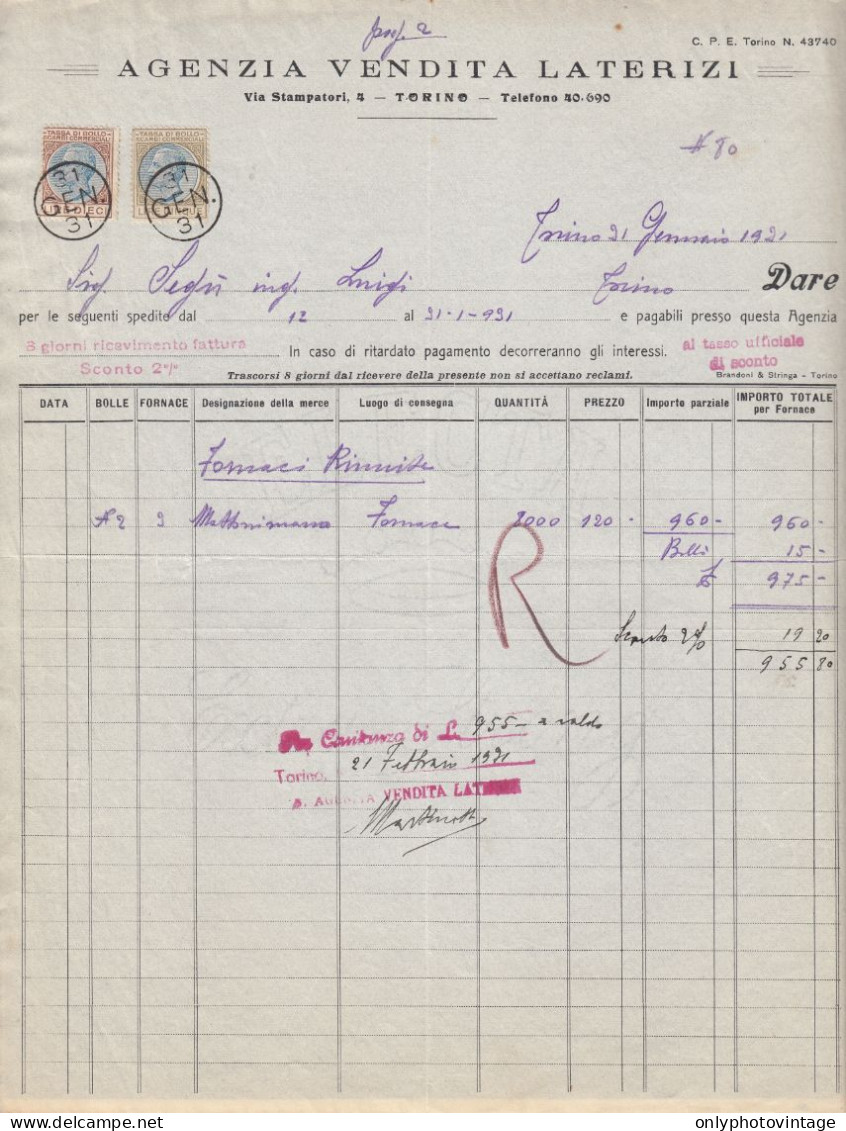 C. P. E. Torino N. 43740
AGENZIA VENDITA LATERIZI
Via Stampatori, 4 — TORINO — Telefono 40-690
N 80
TASSA DI BOLLO SCAMBI COMMERCIALI TASSA DI BOLLO SCAMBI COMMERCIALI
31 GEN. 31 31 GEN. 31
LIRE DIECI
Torino 31 Gennaio 1931
Sig. Segù ing. Luigi Torino Dare
per le seguenti spedito dal 12 al 31-1-931 e pagabili presso questa Agenzia
8 giorni ricevimento fattura In caso di ritardato pagamento decorreranno gli interessi. al tasso ufficiale
Sconto 2% di sconto
Trascorsi 8 giorni dal ricevere della presente non si accettano reclami. Brandoni & Stringa - Torino
DATA BOLLE FORNACE Designazione della merce Luogo di consegna QUANTITÀ PREZZO Importo parziale IMPORTO TOTALE per Fornace
Fornaci Riunite
N 2 Mattoni Fornace 120 - 960- 960-
Bolli 15-
£ 975-
R
Sconto 2% 19 20
955 80
Per Quitanza di L. 955- a saldo
Torino, 21 Febbraio 1931
p. AGENZIA VENDITA
onlyphotovintage